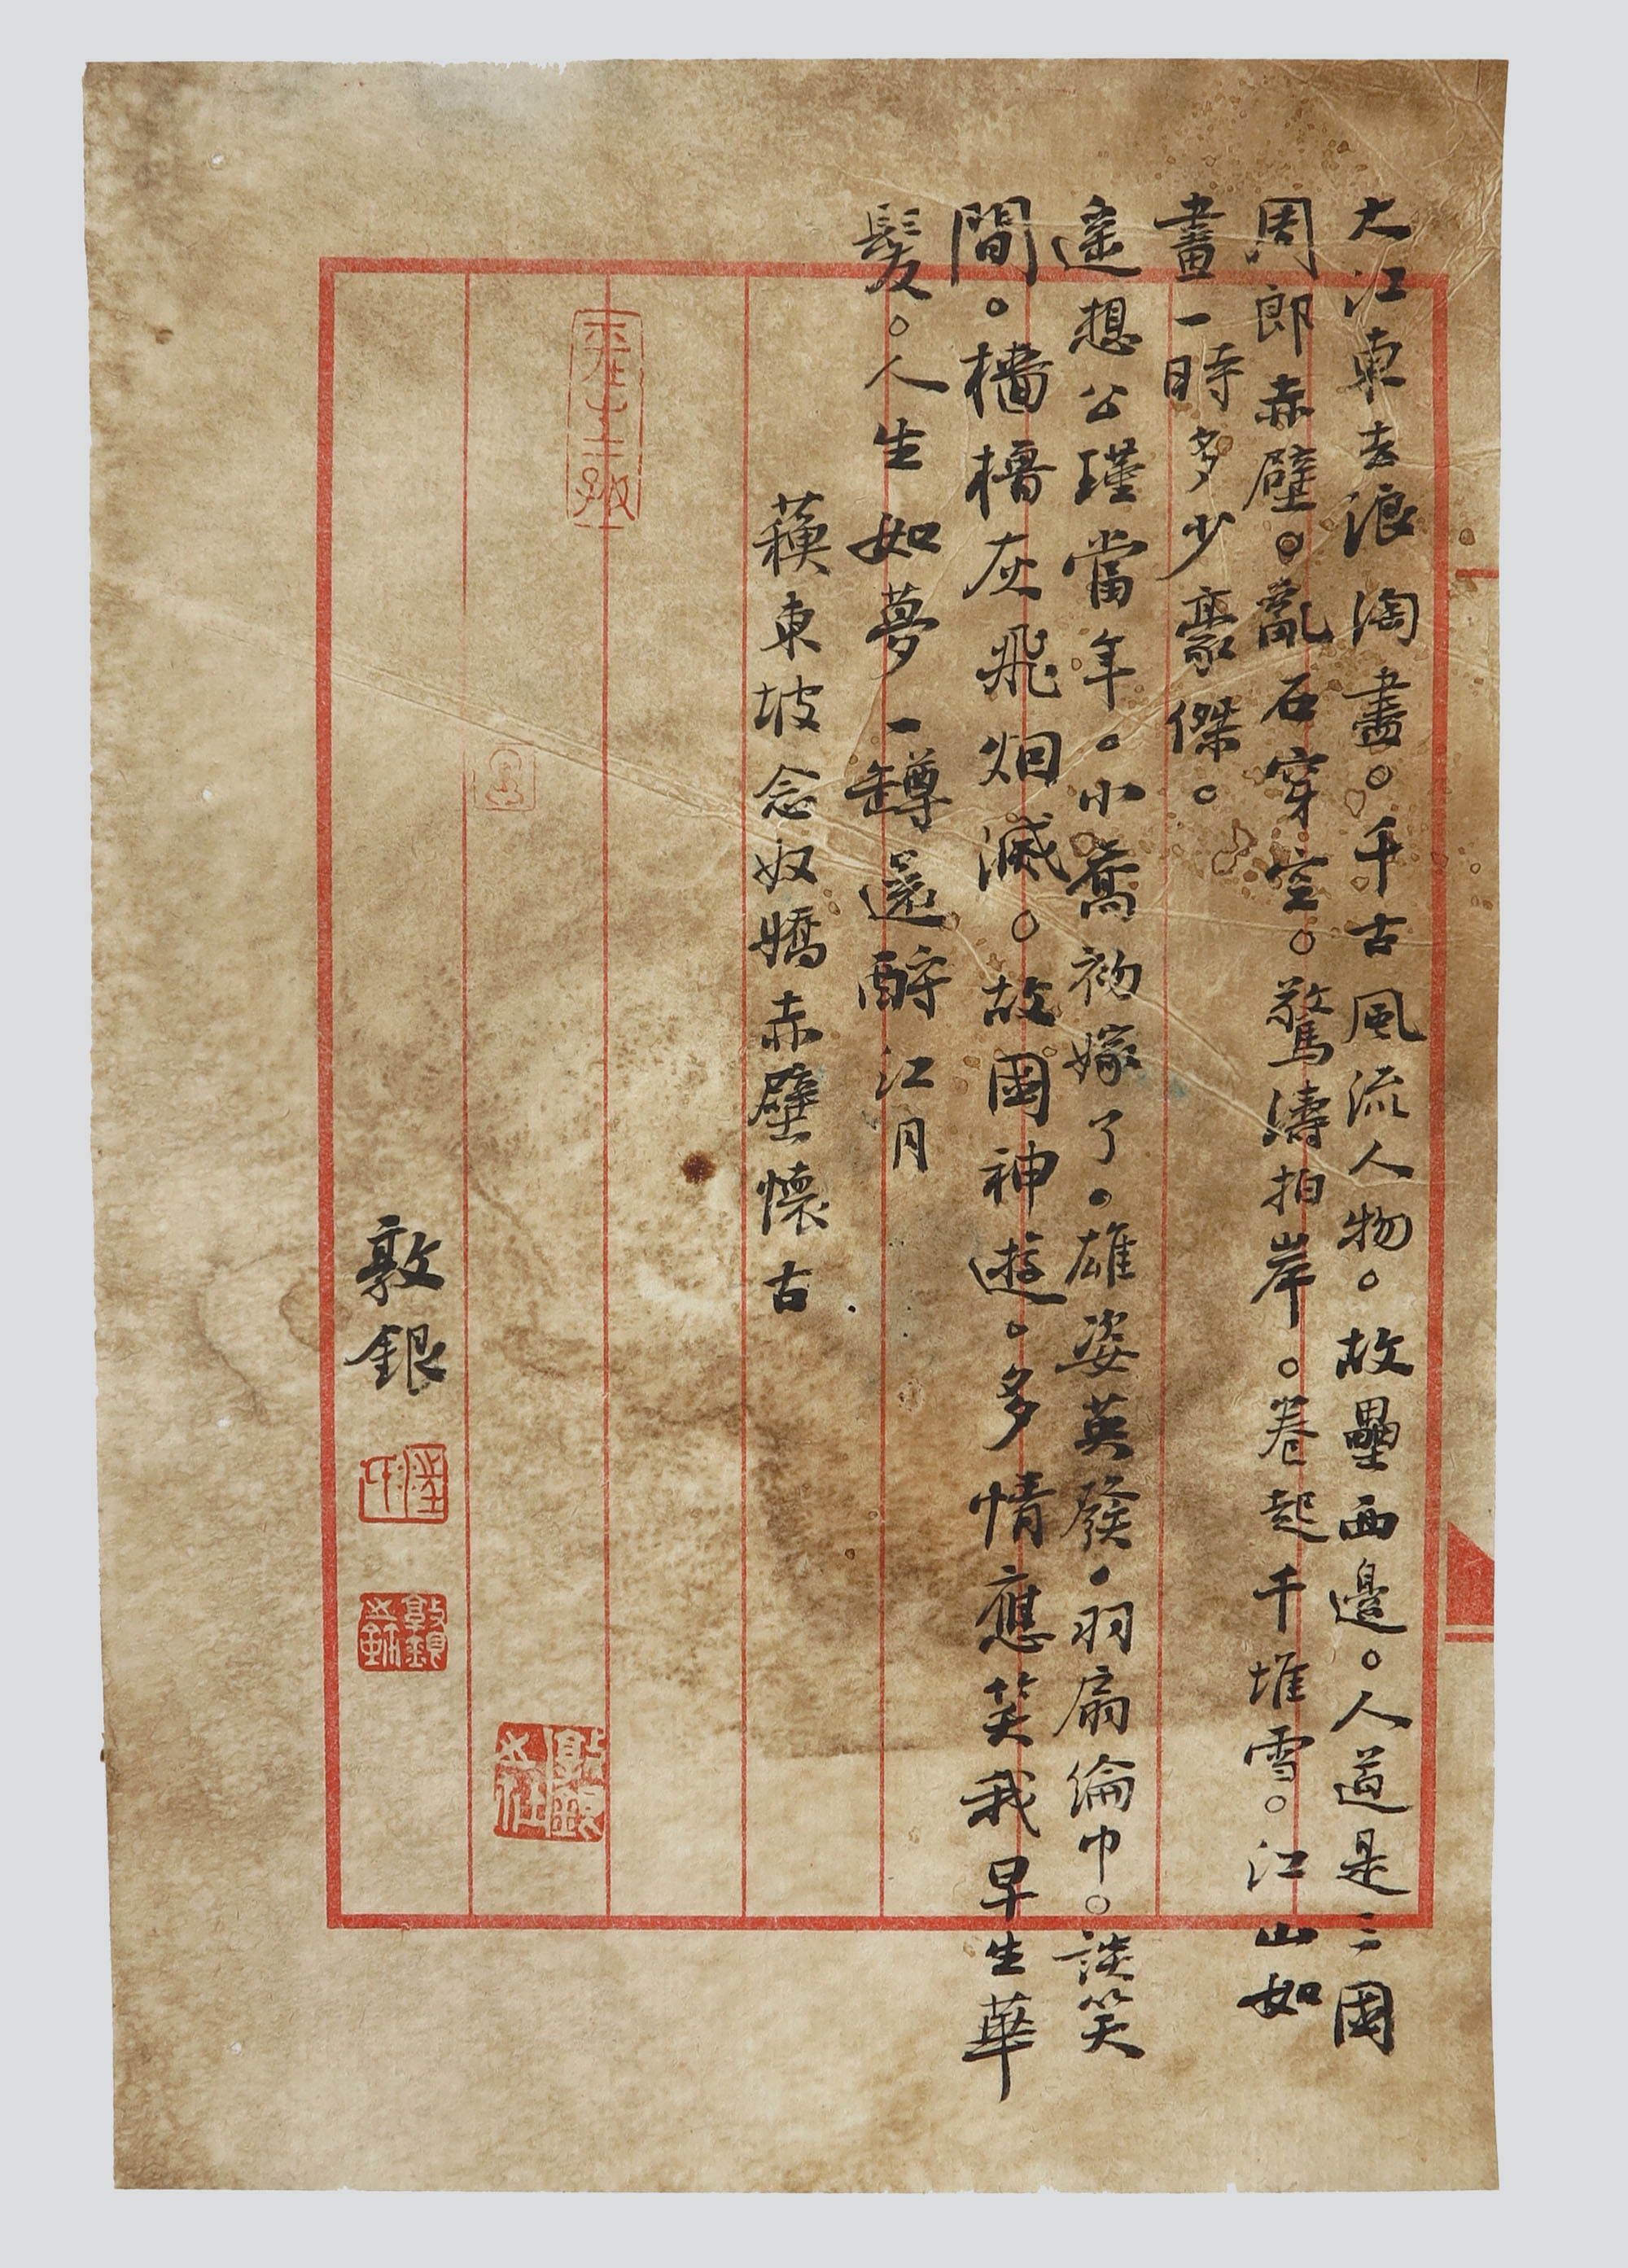 大江東去浪淘盡。千古風流人物。故壘西邊。人道是三國
周郎赤壁。亂石穿空。驚濤拍岸。卷起千堆雪。江山如
畫一時多少豪傑。
遥想公瑾當年。小喬初嫁了。雄姿英發。羽扇綸巾。談笑
間。檣櫓灰飛烟滅。故國神遊。多情應笑我早生華
髮。人生如夢一罇還酹江月
蘇東坡念奴嬌赤壁懷古
敦銀